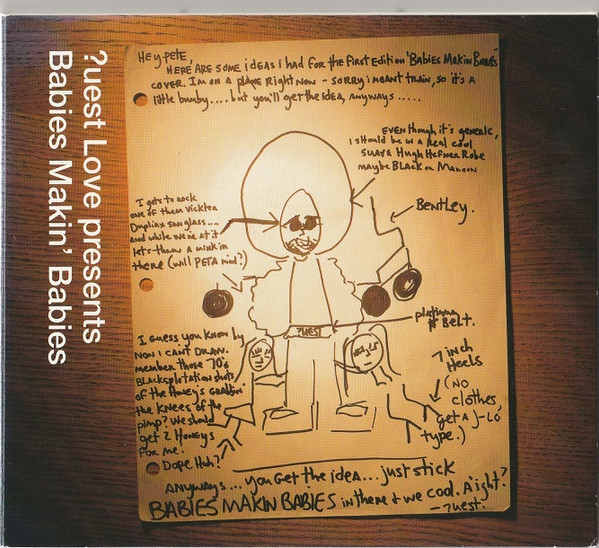 ?uest Love presents
Babies Makin' Babies
Hey Pete,
Here are some ideas i had for the first edition 'Babies Makin Babies'
cover. I'm on a plane right now - sorry i meant train, so it's a
little bumby.... but you'll get the idea, anyways.....
Even though it's generic,
I should be in a real cool
suave Hugh Hefner Robe
maybe Black or Maroon
I gots to rock
one of them
sunglass...
and while we're at it
lets throw a mink in
there (will PETA mind?)
Bentley.
platinum
Belt.
?uest
I guess you know by
now I can't draw.
member those 70's
Blacksploitation shots
of the Honey's grabbin'
the knees of the
pimp? We should
get 2 Honeys
for me.
Dope Huh?
7 inch
Heels
(no
clothes,
get a J-Lo
type.)
Anyways... you get the idea... just stick
BABIES MAKIN BABIES in there & we cool. A'ight?
- ?uest.